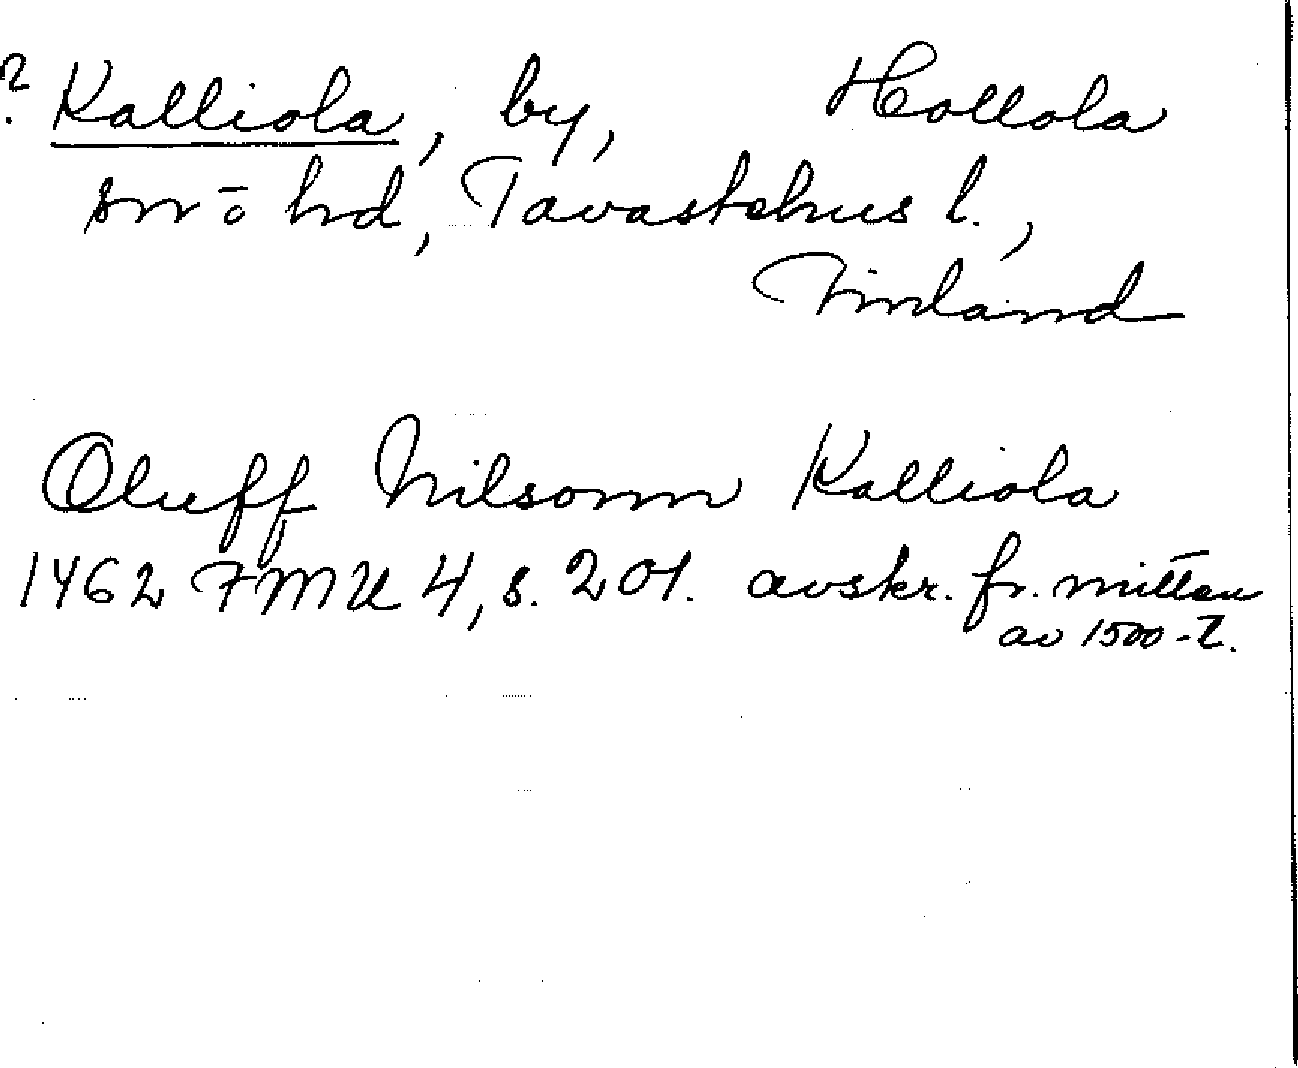 ? Kalliola, by, Hollola
sn o hd, Tavastehus l.,
Finland
Oluff Nilsonn Kalliola
1462 FMU 4, s. 201. avskr. fr. mitten
av 1500-t.